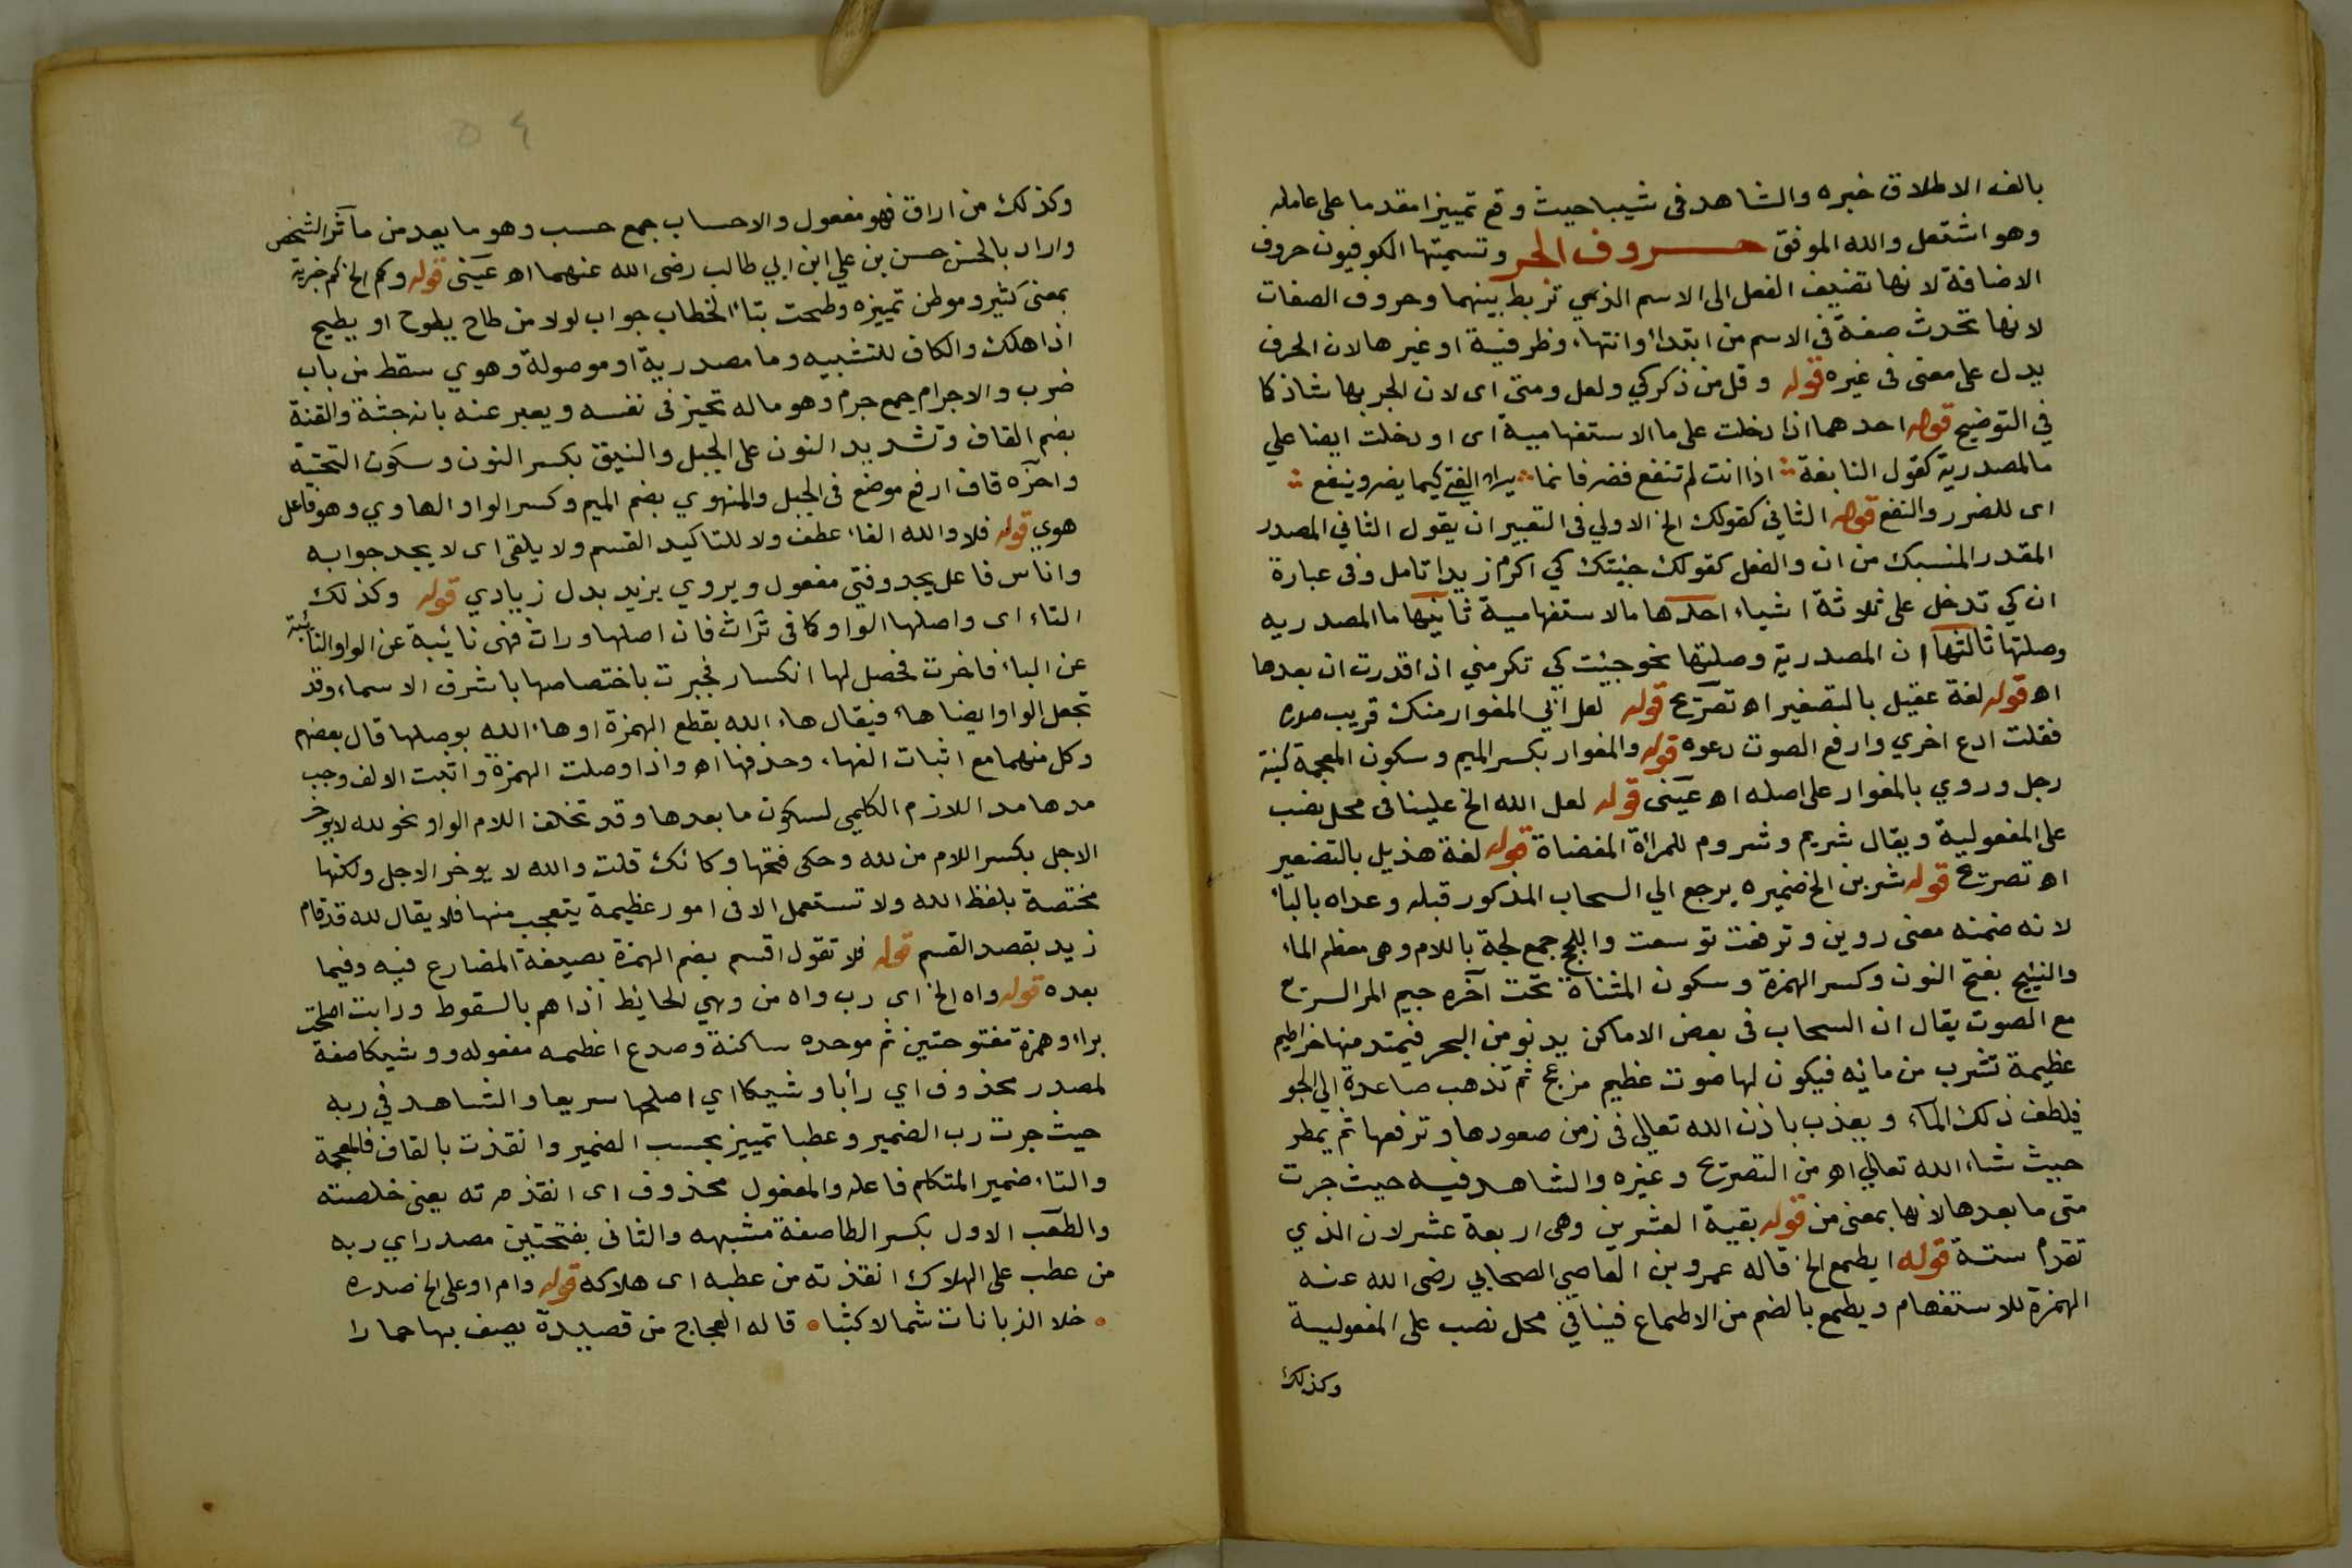 بالف الاطلاق خبره والشاهد فى شيبا حيث وقع تمييزا مقدما على عامله
وهو اشتعل والله الموفق حروف الجر وتسميتها الكوفيون حروف
الاضافة لانها تضيف الفعل الى الاسم الذي تربط بينهما وحروف الصفات
لانها تحدث صفة فى الاسم من ابتداء وانتهاء وظرفية او غيرها لان الحرف
يدل على معنى فى غيره قوله وقل من ذكر كي ولعل ومتى اى لان الجر بها شاذ كا
في التوضيح قوله احدهما اذا دخلت على ما الاستفهامية اى او دخلت ايضا علي
ما المصدرية كقول النابغة اذا انت لم تنفع فضر فانما يراد الفتى كيما يضر وينفع
اى للضرر والنفع قوله الثاني كقولك الخ الاولي فى التعبير ان يقول الثاني المصدر
المقدر المنسبك من ان والفعل كقولك جيئتك كي اكرم زيدا تامل وفى عبارة
ان كي تدخل على ثلاثة اشياء احدها ما الاستفهامية ثانيها ما المصدريه
وصلتها ثالثها ان المصدرية وصلتها نحو جيئت كي تكرمني اذا قدرت ان بعدها
اه قوله لغة عقيل بالتصغير اه تصريح قوله لعل ابي المغوار منك قريب صدره
فقلت ادع اخري وارفع الصوت دعوه قوله والمغوار بكسر الميم وسكون المعجمة كنية
رجل وروي بالمغوار على اصله اه عينى قوله لعل الله الخ علينا فى محل نصب
على المفعولية ويقال شريم وشروم للمرأة المفضاة قوله لغة هذيل بالتصغير
اه تصريح قوله شربن الخ ضميره يرجع الي السحاب المذكور قبله وعداه بالباء
لانه ضمنه معنى روين وترفعت توسعت واللجج جمع لجة باللام وهى معظم الماء
والنئيج بفتح النون وكسر الهمزة وسكون المثناة تحت آخره جيم المر السريع
مع الصوت يقال ان السحاب فى بعض الاماكن يدنو من البحر فيمتد منها خراطيم
عظيمة تشرب من مائه فيكون لها صوت عظيم مزعج ثم تذهب صاعدة الي الجو
فيلطف ذلك الماء ويعذب باذن الله تعالي فى زمن صعودها وترفعها ثم يمطر
حيث شاء الله تعالي اه من التصريح وغيره والشاهد فيه حيث جرت
متى ما بعدها لانها بمعنى من قوله بقية العشرين وهى اربعة عشر لان الذي
تقدم ستة قوله ايطمع الخ قاله عمرو بن العاصي الصحابي رضى الله عنه
الهمزة للاستفهام ويطمع بالضم من الاطماع فينا فى محل نصب على المفعولية
وكذلك
وكذلك من اراق فهو مفعول والاحساب جمع حسب وهو ما يعد من مآثر الشخص
واراد بالحسن حسن بن علي ابن ابي طالب رضى الله عنهما اه عينى قوله وكم الخ كم خبرية
بمعنى كثير وموطن تمييزه وطحت بتاء الخطاب جواب لولا من طاح يطوح او يطيح
اذا هلك والكاف للتشبيه وما مصدرية او موصولة وهوي سقط من باب
ضرب والاجرام جمع جرم وهو ما له تحيز فى نفسه ويعبر عنه بانه جثة والقنة
بضم القاف وتشديد النون على الجبل والنيق بكسر النون وسكون التحتية
واخره قاف ارفع موضع فى الجبل والمنهوي بضم الميم وكسر الواو الهاوي وهو فاعل
هوي قوله فلا والله الفاء عطف ولا للتاكيد القسم ولا يلقى اى لا يجد جوابه
واناس فاعل يجد وفتي مفعول ويروي يزيد بدل زيادي قوله وكذلك
التاء اى واصلها الواو كا فى تراث فان اصلها وراث فهى نائبة عن الواو النائبة
عن الباء فاخرت فحصل لها انكسار فجبرت باختصاصها باشرف الاسماء وقد
تجعل الواو ايضا هاء فيقال هاء الله بقطع الهمزة اوهاء الله بوصلها قال بعضهم
وكل منهما مع اثبات الفهاء وحذفها اه واذا وصلت الهمزة واثبت الالف وجب
مدها مد اللازم الكلمي لسكون ما بعدها وقد تخلف اللام الواو نحو لله لا يوخر
الاجل بكسر اللام من لله وحكى فتحها وكانك قلت والله لا يوخر الاجل ولكنها
مختصة بلفظ الله ولا تستعمل الا فى امور عظيمة يتعجب منها فلا يقال لله قد قام
زيد بقصد القسم قوله فلا تقول اقسم بضم الهمزة بصيغة المضارع فيه وفيما
بعده قوله واه الخ اى رب واه من وهي الحائط اذا هم بالسقوط ورابت اصلحت
براء وهمزة مفتوحتين ثم موحده ساكنة وصدع اعظمه مفعوله ووشيكا صفة
لمصدر محذوف اي رأبا وشيكا اي اصلحا سريعا والشاهد في ربه
حيث جرت رب الضمير وعطبا تمييز بحسب الضمير وانقذت بالقاف فالمعجمة
والتاء ضمير المتكلم فاعله والمفعول محذوف اى انقذته يعنى خلصته
والطعب الاول بكسر الطا صفة مشبهه والثانى بفتحتين مصدر اي ربه
من عطب على الهلاك انقذته من عطبه اى هلاكه قوله وام اوعلى الخ صدره
خلا الذبانات شمالا كثبا قاله العجاج من قصيدة يصف بها حمارا